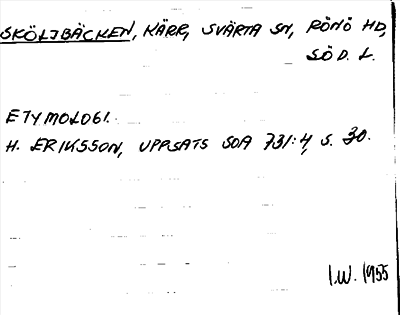 SKÖLJBÄCKEN, KÄRR, SVÄRTA SN, RÖNÖ HD,
SÖD. L.
ETYMOLOGI.
H. ERIKSSON, UPPSATS SOA 731:4, S. 30.
I.W. 1955